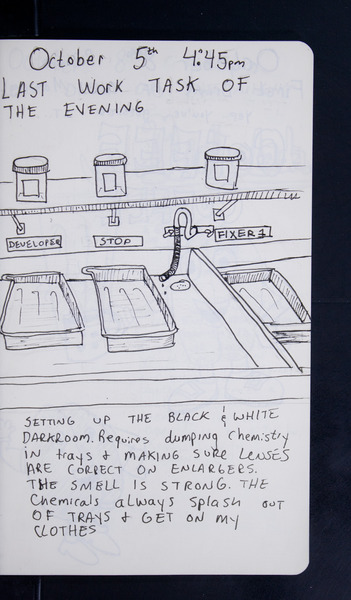 October 5th 4:45pm
LAST WORK TASK OF
THE EVENING
DEVELOPER
STOP
FIXER 1
SETTING UP THE BLACK & WHITE
DARKROOM. Requires dumping Chemistry
in trays & MAKING SURE LENSES
ARE CORRECT ON ENLARGERS.
THE SMELL IS STRONG. THE
Chemicals always splash OUT
OF TRAYS & GET ON MY
CLOTHES